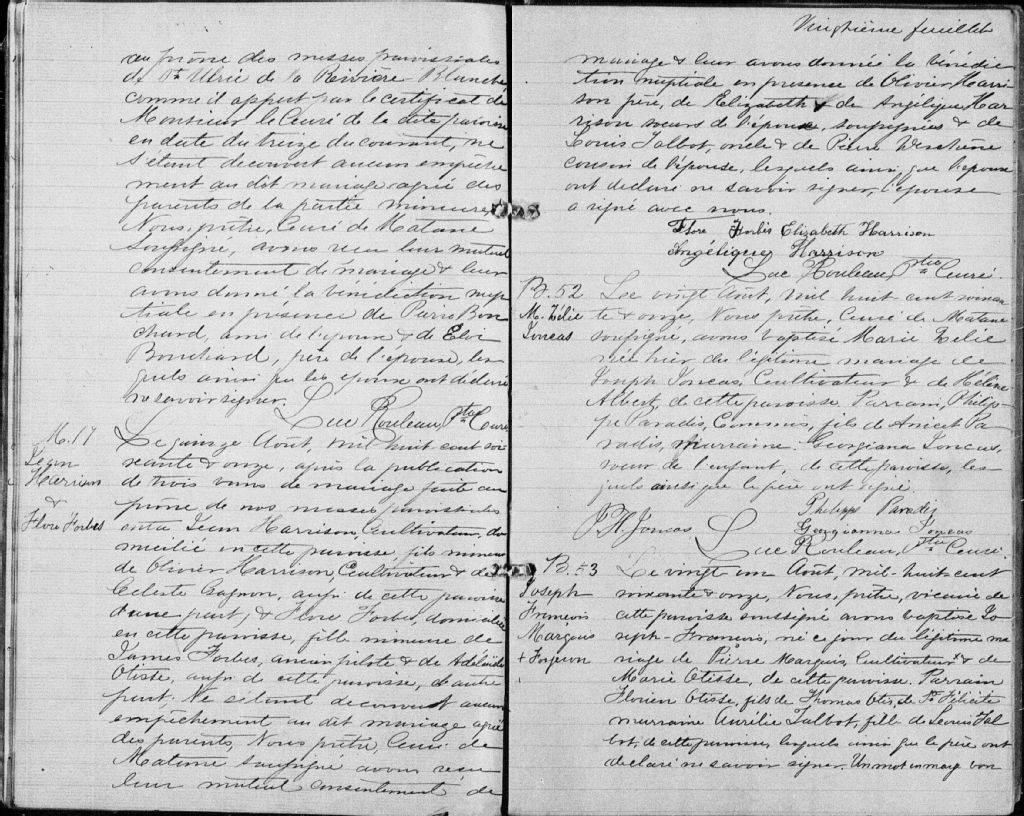 au prône des messes paroissiales
de Ste Ulric de la Rivière-Blanche
comme il appert par le certificat de
Monsieur le Curé de la dite paroisse
en date du treize du courant, ne
s'étant découvert aucun empêche
ment au dit mariage, agréé des
parents de la partie mineure,
Nous, prêtre, Curé de Matane
soussigné, avons reçu leur mutuel
consentement de mariage & leur
avons donné la bénédiction nup
tiale en présence de Pierre Bou
chard, ami de l'époux & de Eloi
Bouchard, père de l'épouse, les
quels ainsi que les époux ont déclaré
ne savoir signer.
Luc Rouleau, Ptre Curé
M. 17
Jean
Harrison
&
Flore Forbes
Le quinze Août, mil huit cent soi
xante & onze, après la publication
de trois bans de mariage faite au
prône de nos messes paroissiales
entre Jean Harrison, Cultivateur, do
micilié en cette paroisse, fils mineur
de Olivier Harrison, Cultivateur & de
Celeste Gagnon, aussi de cette paroisse
d'une part, & Flore Forbes, domiciliée
en cette paroisse, fille mineure de
James Forbes, ancien pilote & de Adélaïde
Otisse, aussi de cette paroisse, d'autre
part; Ne s'étant découvert aucun
empêchement au dit mariage agréé
des parents, Nous, prêtre, Curé de
Matane soussigné avons reçu
leur mutuel consentement de
Vingtième feuillet
mariage & leur avons donné la bénédic
tion nuptiale en présence de Olivier Harri
son père, de Elizabeth & de Angélique Har
rison soeurs de l'époux, soussignées & de
Louis Talbot, oncle & de Pierre
cousin de l'épouse, lesquels ainsi que l'époux
ont déclaré ne savoir signer, l'épouse
a signé avec nous.
Flore Forbis Elizabeth Harrison
Angélique Harrison
Luc Rouleau, Ptre Curé
B. 52
M. Zélie
Joncas
Le vingt Août, mil huit cent soixan
te & onze, Nous, prêtre, Curé de Matane
soussigné, avons baptisé Marie Zélie
née hier du légitime mariage de
Joseph Joncas, Cultivateur & de Hélène
Albert, de cette paroisse. Parrain, Philip
pe Paradis, Commis, fils de Anicet Pa
radis, marraine Georgiana Joncas,
soeur de l'enfant, de cette paroisse, les
quels ainsi que le père ont signé.
Philippe Paradis
P H Joncas Georgianna Joncas
Luc Rouleau, Ptre Curé
B. 53
Joseph
François
Marquis
+
Le vingt un Août, mil-huit-cent
soixante & onze, Nous, prêtre, vicaire de
cette paroisse soussigné avons baptisé Jo
seph-François, né ce jour du légitime ma
riage de Pierre Marquis, Cultivateur & de
Marie Otisse, de cette paroisse. Parrain
Florien Otisse, fils de Thomas Otis, de Ste Félicité
marraine Aurélie Talbot, fille de Louis Tal
bot, de cette paroisse, lesquels ainsi que le père ont
déclaré ne savoir signer. Un mot en marge bon